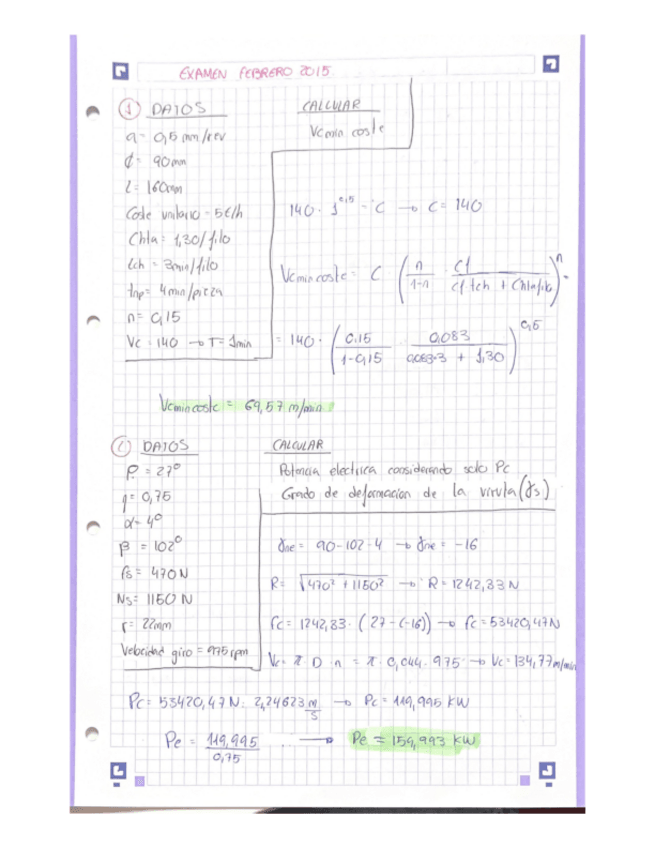 EXAMEN FEBRERO 2015
1 DATOS
CALCULAR
Vc min coste
a = 0,5 mm/rev
ϕ = 90mm
L = 160mm
Coste unitario = 5€/h
Chta = 1,30/filo
tch = 3min/filo
tnp = 4min/pieza
n = 0,15
Vc = 140 → T = 1min
140 · 1^0,15 = C → C = 140
Vc min coste = C (n/1-n · Cf/Cf tch + Chta/filo)^n =
= 140 · (0.15/1-0,15 · 0,083/0,083·3 + 1,30)^0,5
Vc min coste = 69,57 m/min
DATOS
CALCULAR
= 27°
η = 0,75
α = 4°
β = 102°
fs = 470N
Ns = 1150 N
r = 22mm
Velocidad giro = 975 rpm
Potencia electrica considerando solo Pc
Grado de deformacion de la viruta (γs)
γne = 90-102-4 → γne = -16
R = √470² + 1150² → R = 1242,33 N
fc = 1242,33 · (27-(-16)) → fc = 53420,47N
Vc = π D n = π · 0,044 · 975 → Vc = 134,77m/min
Pc = 53420,47N · 2,24623 m/s → Pc = 119,995 KW
Pe = 119,995/0,75 → Pe = 159,993 KW